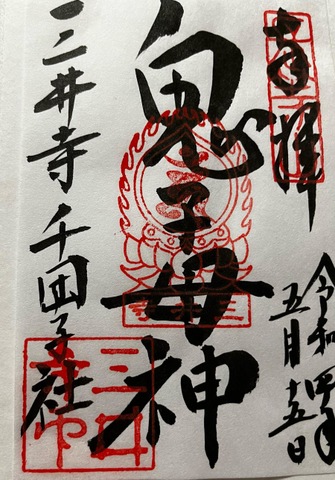 奉拝
令和四年
五月十五日
鬼子母神
三井寺 千団子社
三井寺印